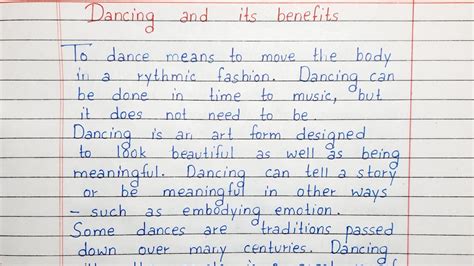 Dancing and its benefits
To dance means to move the body
in a rythmic fashion. Dancing can
be done in time to music, but
it does not need to be.
Dancing is an art form designed
to look beautiful as well as being
meaningful. Dancing can tell a story
or be meaningful in other ways
- such as embodying emotion.
Some dances are traditions passed
down over many centuries. Dancing